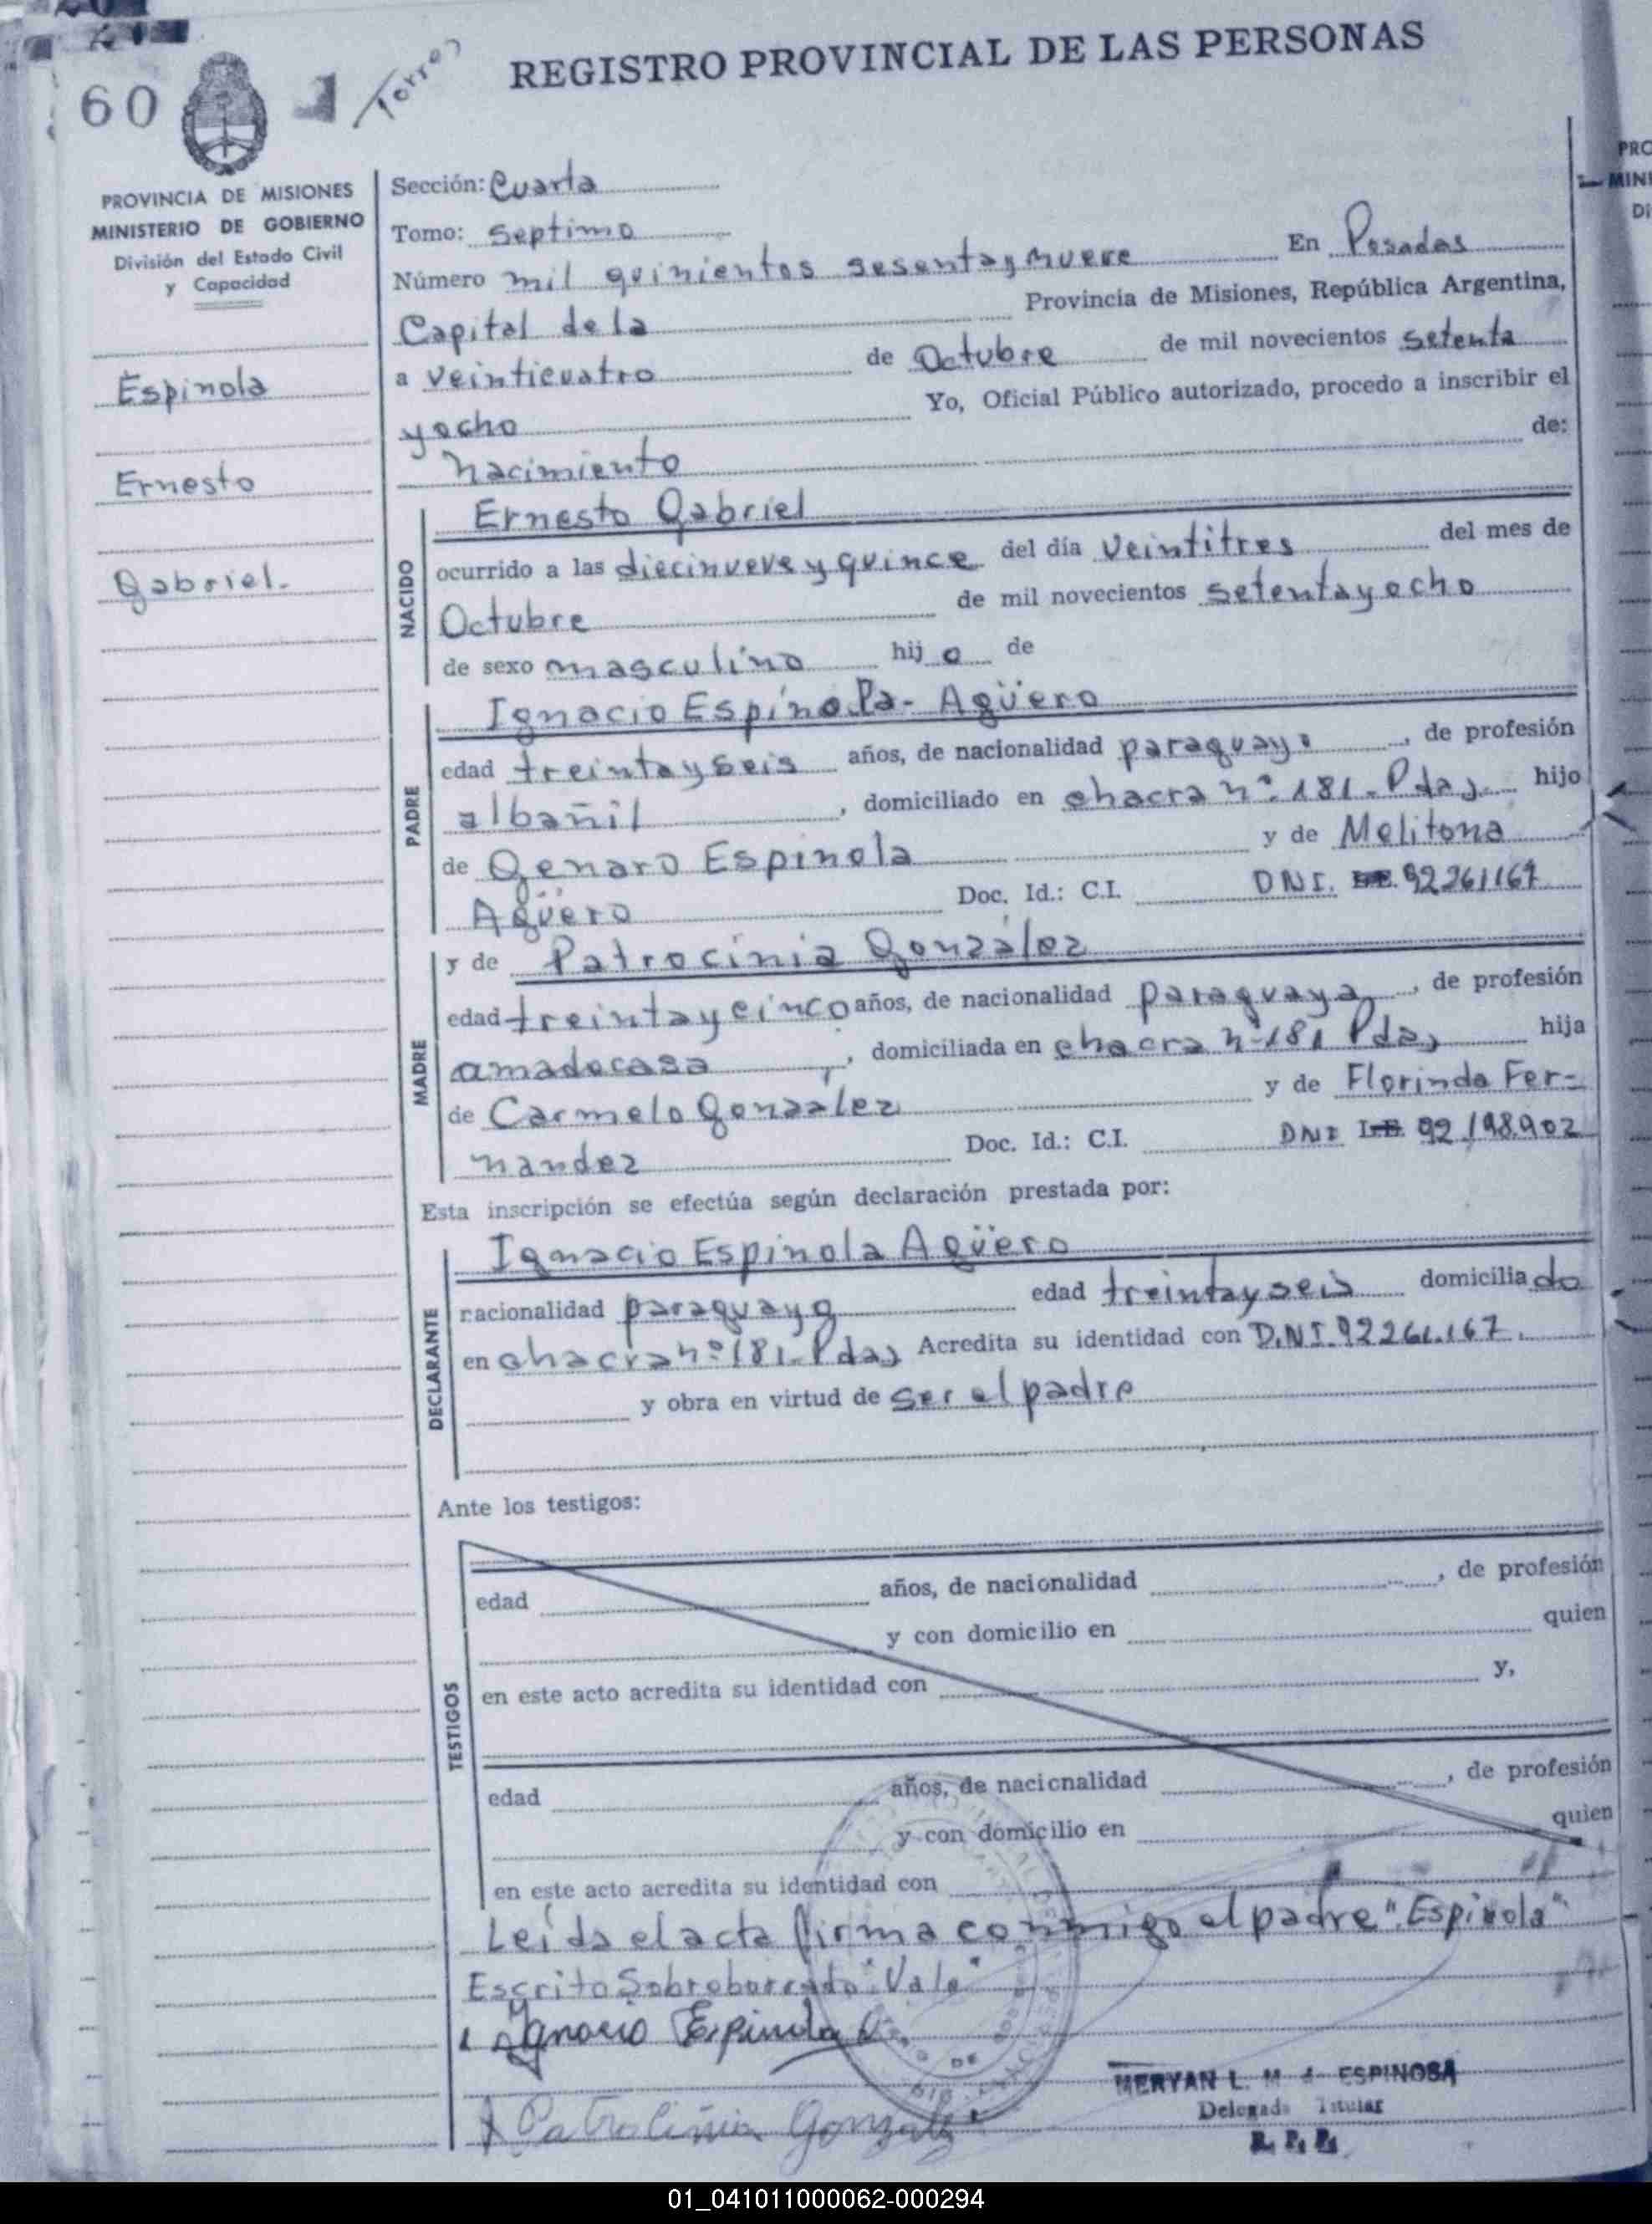 REGISTRO PROVINCIAL DE LAS PERSONAS
60
Torres
PROVINCIA DE MISIONES
MINISTERIO DE GOBIERNO
División del Estado Civil
y Capacidad
Espinola
Ernesto
Gabriel.
Sección: Cuarta
Tomo: Septimo
Número mil quinientos sesentaynueve En Posadas
Capital de la Provincia de Misiones, República Argentina,
a veinticuatro de Octubre de mil novecientos setenta
yocho Yo, Oficial Público autorizado, procedo a inscribir el
nacimiento de:
NACIDO
Ernesto Gabriel
ocurrido a las diecinueve y quince del día veintitres del mes de
Octubre de mil novecientos setentayocho
de sexo masculino hijo de
PADRE
Ignacio Espínola- Agüero
edad treintayseis años, de nacionalidad paraguayo, de profesión
albañil, domiciliado en chacra n°. 181. Pdas. hijo
de Genaro Espinola y de Melitona
Agüero Doc. Id.: C.I. DNI. 92261167
MADRE
y de Patrocinia González
edad treintaycinco años, de nacionalidad paraguaya, de profesión
amadecasa, domiciliada en chacra n°181 Pdas hija
de Carmelo González y de Florinda Fer-
nandez Doc. Id.: C.I. DNI L.E. 92.198.902
Esta inscripción se efectúa según declaración prestada por:
DECLARANTE
Ignacio Espinola Agüero
nacionalidad paraguayo edad treintayseis domiciliado
en chacra n°181. Pdas Acredita su identidad con D.N.I 92261.167.
y obra en virtud de ser el padre
Ante los testigos:
TESTIGOS
edad años, de nacionalidad , de profesión
y con domicilio en quien
en este acto acredita su identidad con y,
edad años, de nacionalidad , de profesión
y con domicilio en quien
en este acto acredita su identidad con
Leída el acta firma conmigo el padre "Espinola"
Escrito Sobreborrado "Vale"
Ignacio Espinola A.
Patrocinia Gonzalez
MERYAN L. M ESPINOSA
Delegada Titular
R. P. P.
01_041011000062-000294